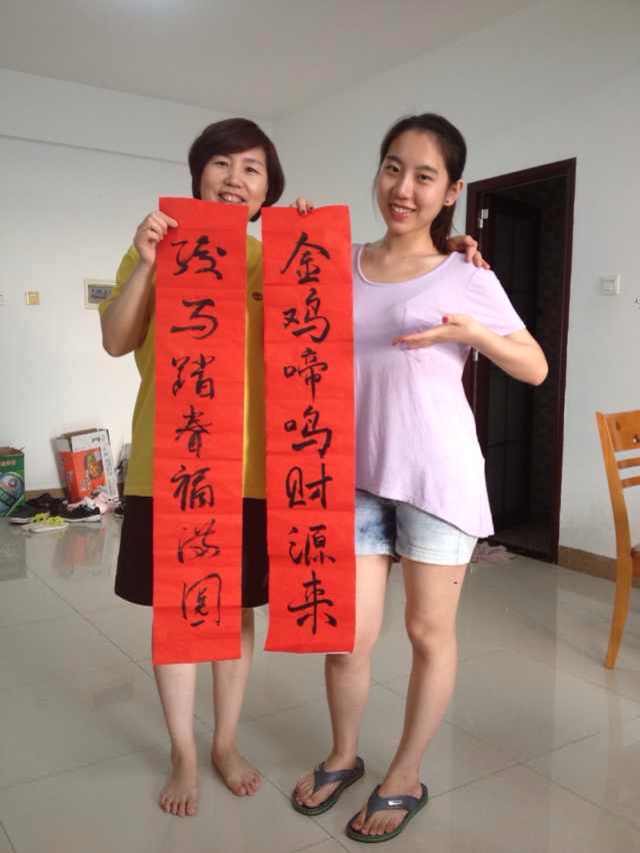 金鸡啼鸣财源来
骏马踏春福满园